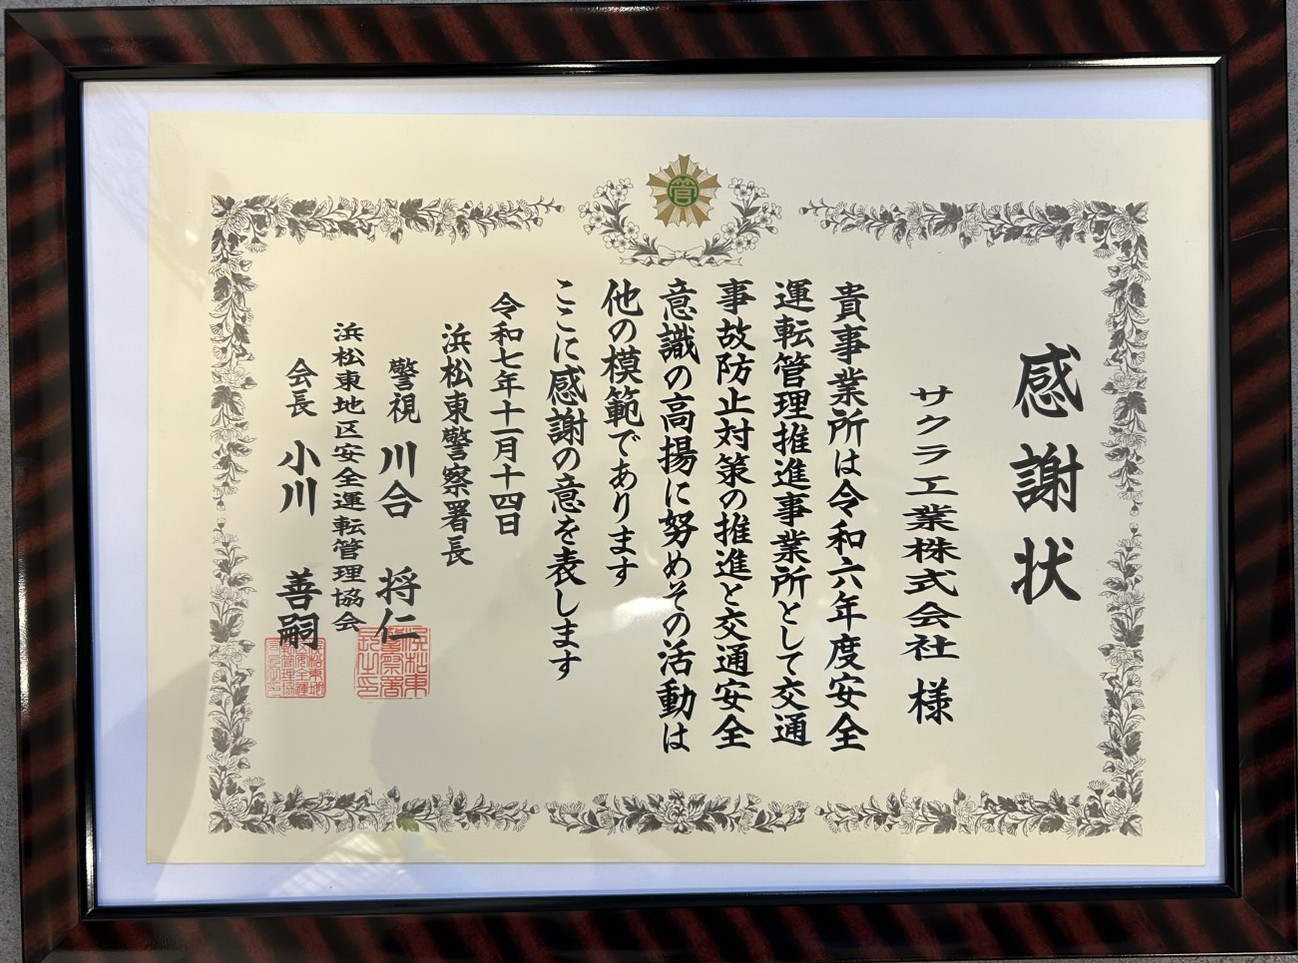 感謝状
サクラ工業株式会社 様
貴事業所は令和六年度安全
運転管理推進事業所として交通
事故防止対策の推進と交通安全
意識の高揚に努めその活動は
他の模範であります
ここに感謝の意を表します
令和七年十一月十四日
浜松東警察署長
警視 川合 将仁
浜松東地区安全運転管理協会
会長 小川 善嗣